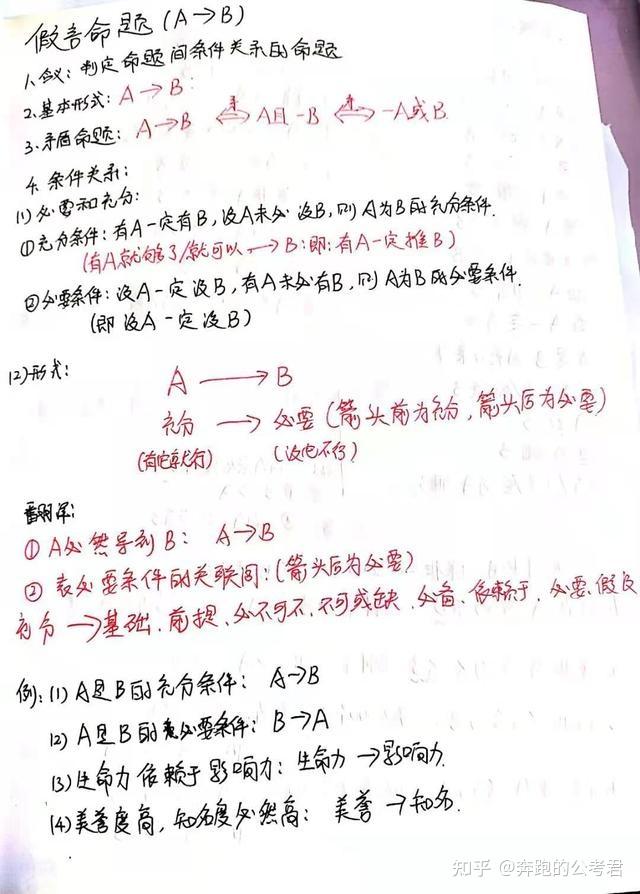 假言命题(A→B)
1.含义:判定命题间条件关系的命题
2.基本形式:A→B
3.矛盾命题:A→B ⟺矛 A且-B ⟺矛 -A或B
4.条件关系:
(1)必要和充分:
①充分条件:有A一定有B,没A未必没B,则A为B的充分条件.
(有A就够了/就可以→B:即:有A一定推B)
②必要条件:没A一定没B,有A未必有B,则A为B的必要条件.
(即没A一定没B)
(2)形式:
A → B
充分 → 必要(箭头前为充分,箭头后为必要)
(有它就行) (没它不行)
翻译:
①A必然导致B: A→B
②表必要条件的关联词:(箭头后为必要)
充分→基础.前提.必不可不.不可或缺.必备.依赖于.必要.假设
例:(1)A是B的充分条件: A→B
(2)A是B的必要条件:B→A
(3)生命力依赖于影响力:生命力→影响力.
(4)美誉度高,知名度必然高: 美誉→知名.
知乎 @奔跑的公考君